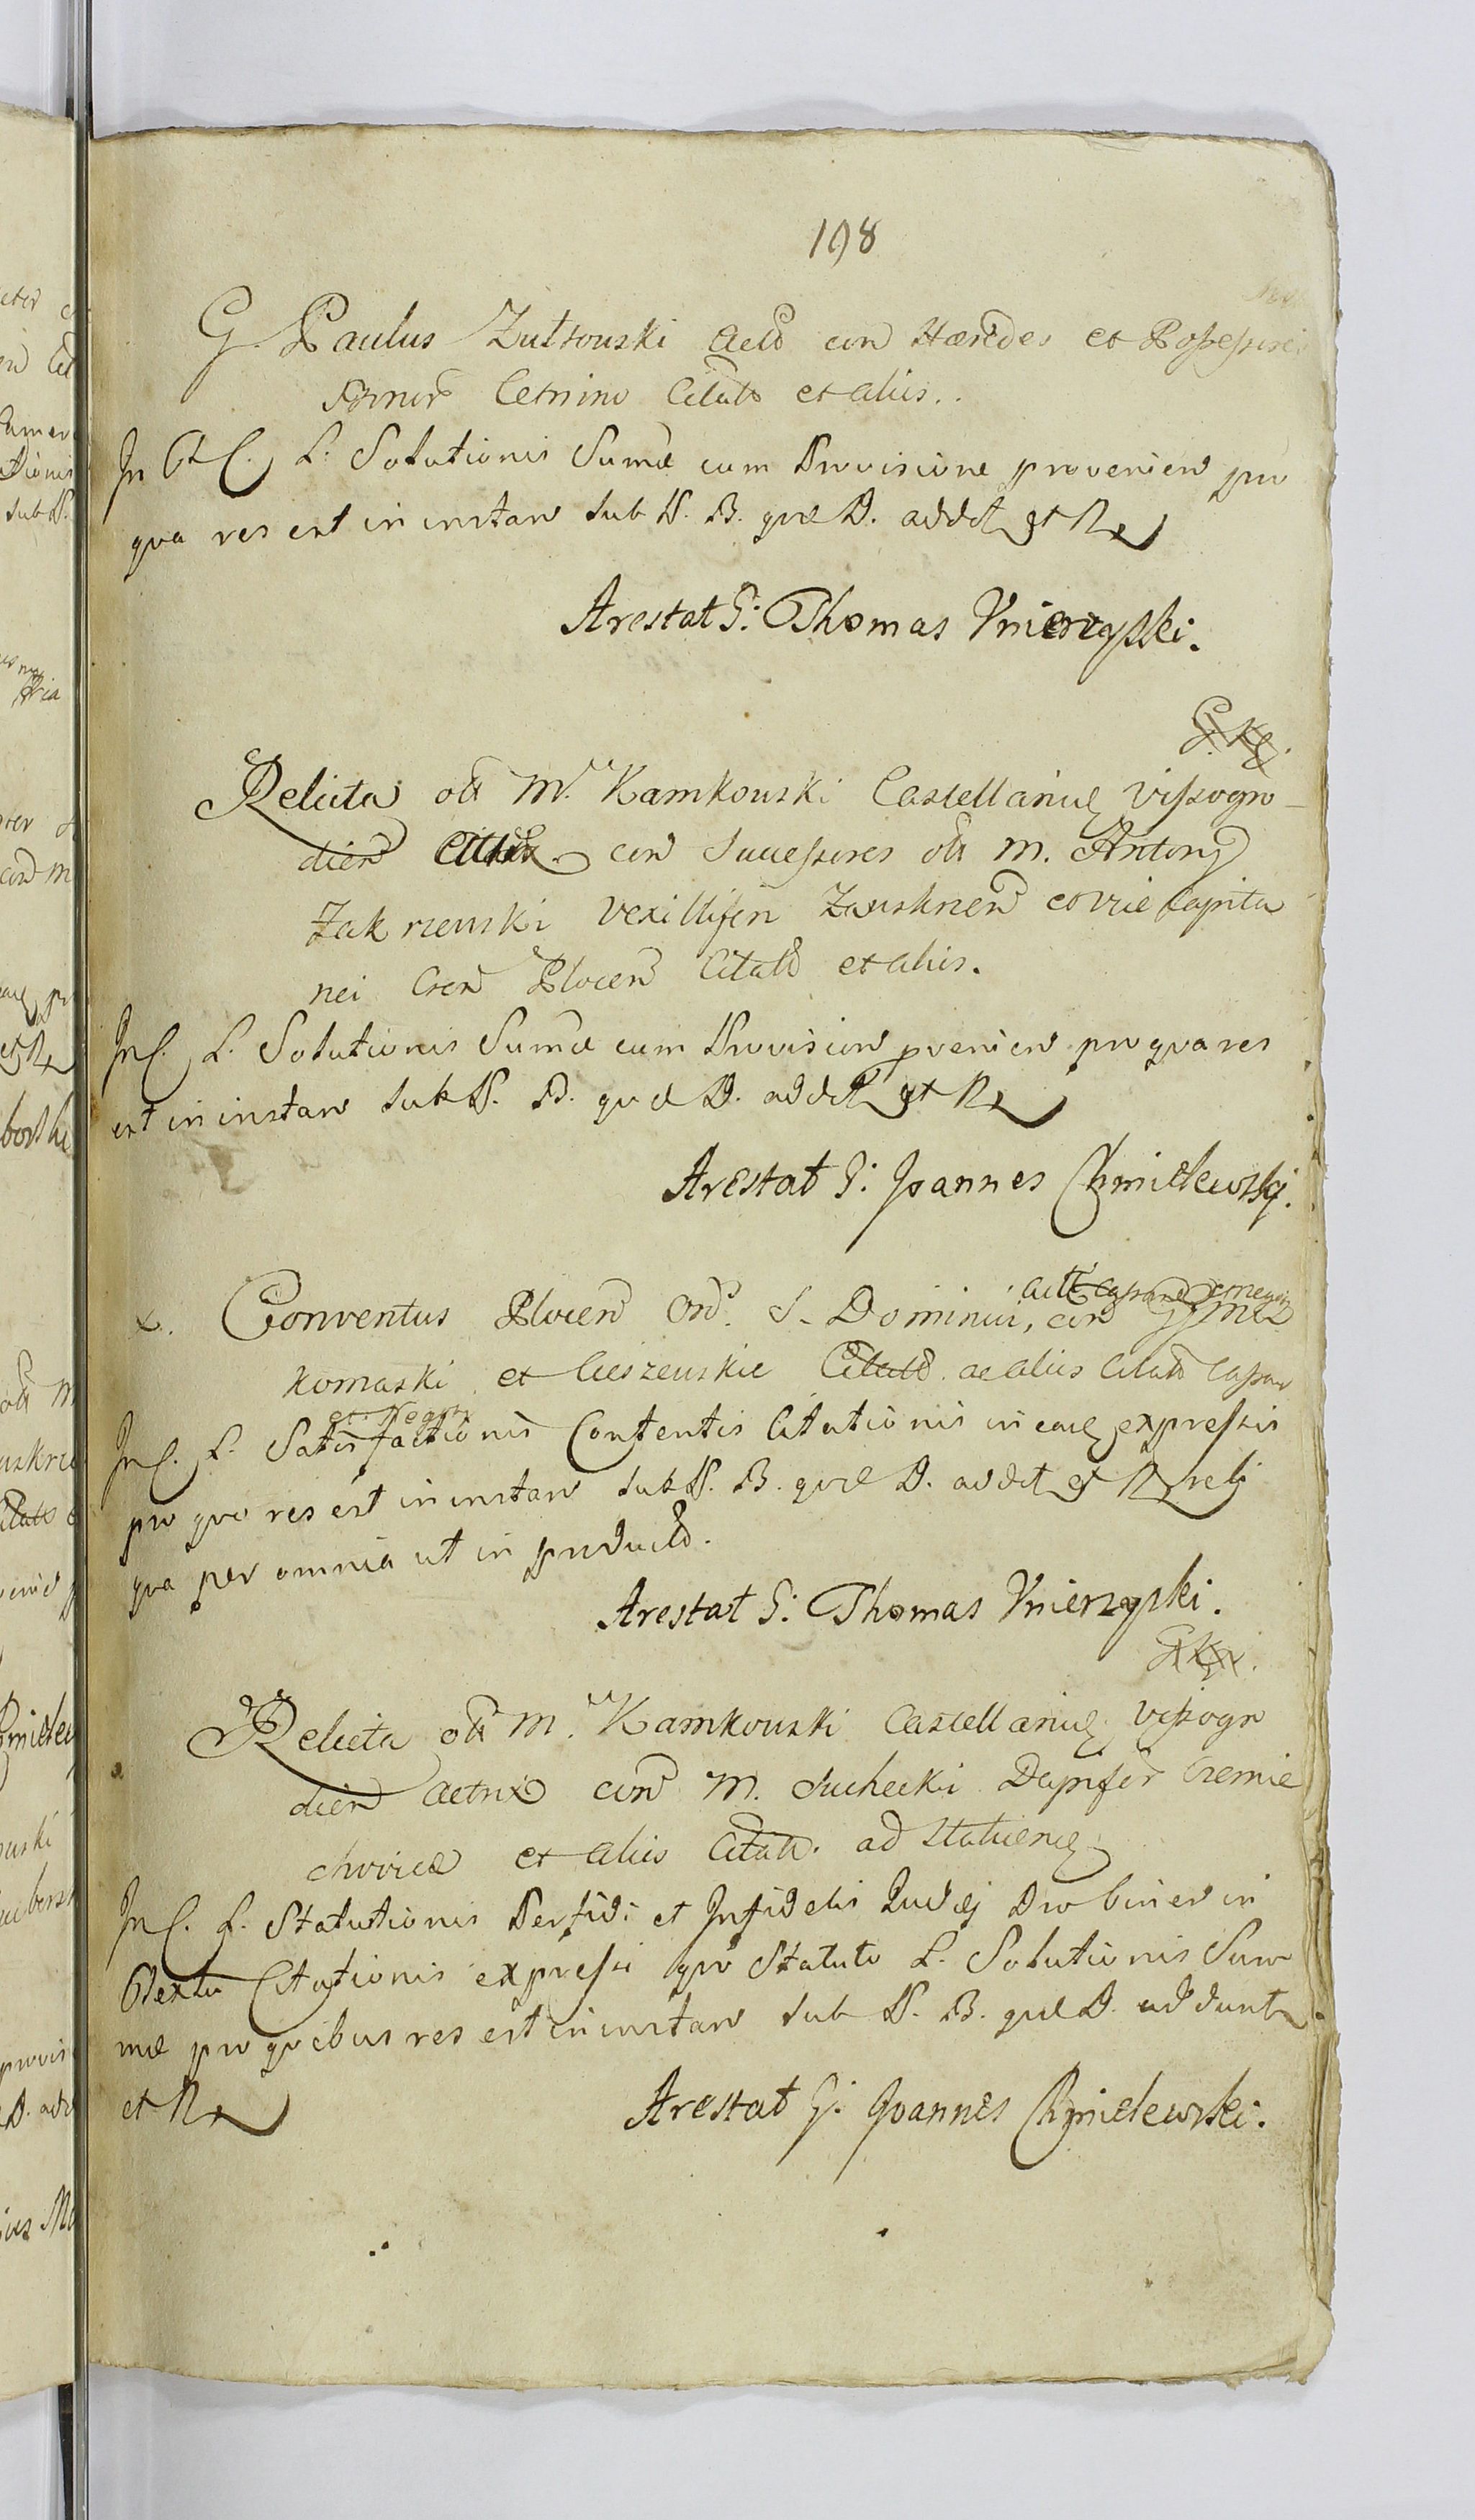 198
G. Paulus Zutrouski Actō con Hæredes et Possessores
Bonor Cetnino Citatō et aliis..
In Ct C. L. Solutionis Sumæ cum Provisione provenien pro
qua res est in instan sub N. B. quæ D. addct et R
Arestat G: Thomas Vnierzyski.
Relicta oli M. Kamkouski Castellanuę Vissogro-
dien con Successores oli M. Antonij
Zakrzeuski Vexilliferi Zauskren Capita
nei Plocen Citatō et aliis.
In C. L. Solutionis Sumæ cum Provision provenien pro qua res
est in instan sub N. B. quæ D. addct et R
Arestat G: Joannes Chmielewskj.
x. Conventus Plocen Ord. S. Dominici, con
Komaski et Cieszeuskie Citatō ac aliis Citatō Capan
In C. L. Satisfactionis Contentis Citationis in eaq expressis
pro quo res est in instan sub N. B. quæ D. addct et R reli
qua per omnia ut in producto.
Arestat G: Thomas Vnierzyski.
Relicta oli M. Kamkouski Castellanuę Vissogro
dien Actrix con M. Suchecki Dapifer Cremie
choviæ et aliis Citatō. ad statuenę
In C. L. Statutionis Perfidi et Infidelis Judęj Drobinen in
Ctextu Citationis expressi quo Statuto L. Solutionis Sum
mæ pro quibus res est in instan sub N. B. quæ D. addunt
et R
Arestat G: Joannes Chmielewski.